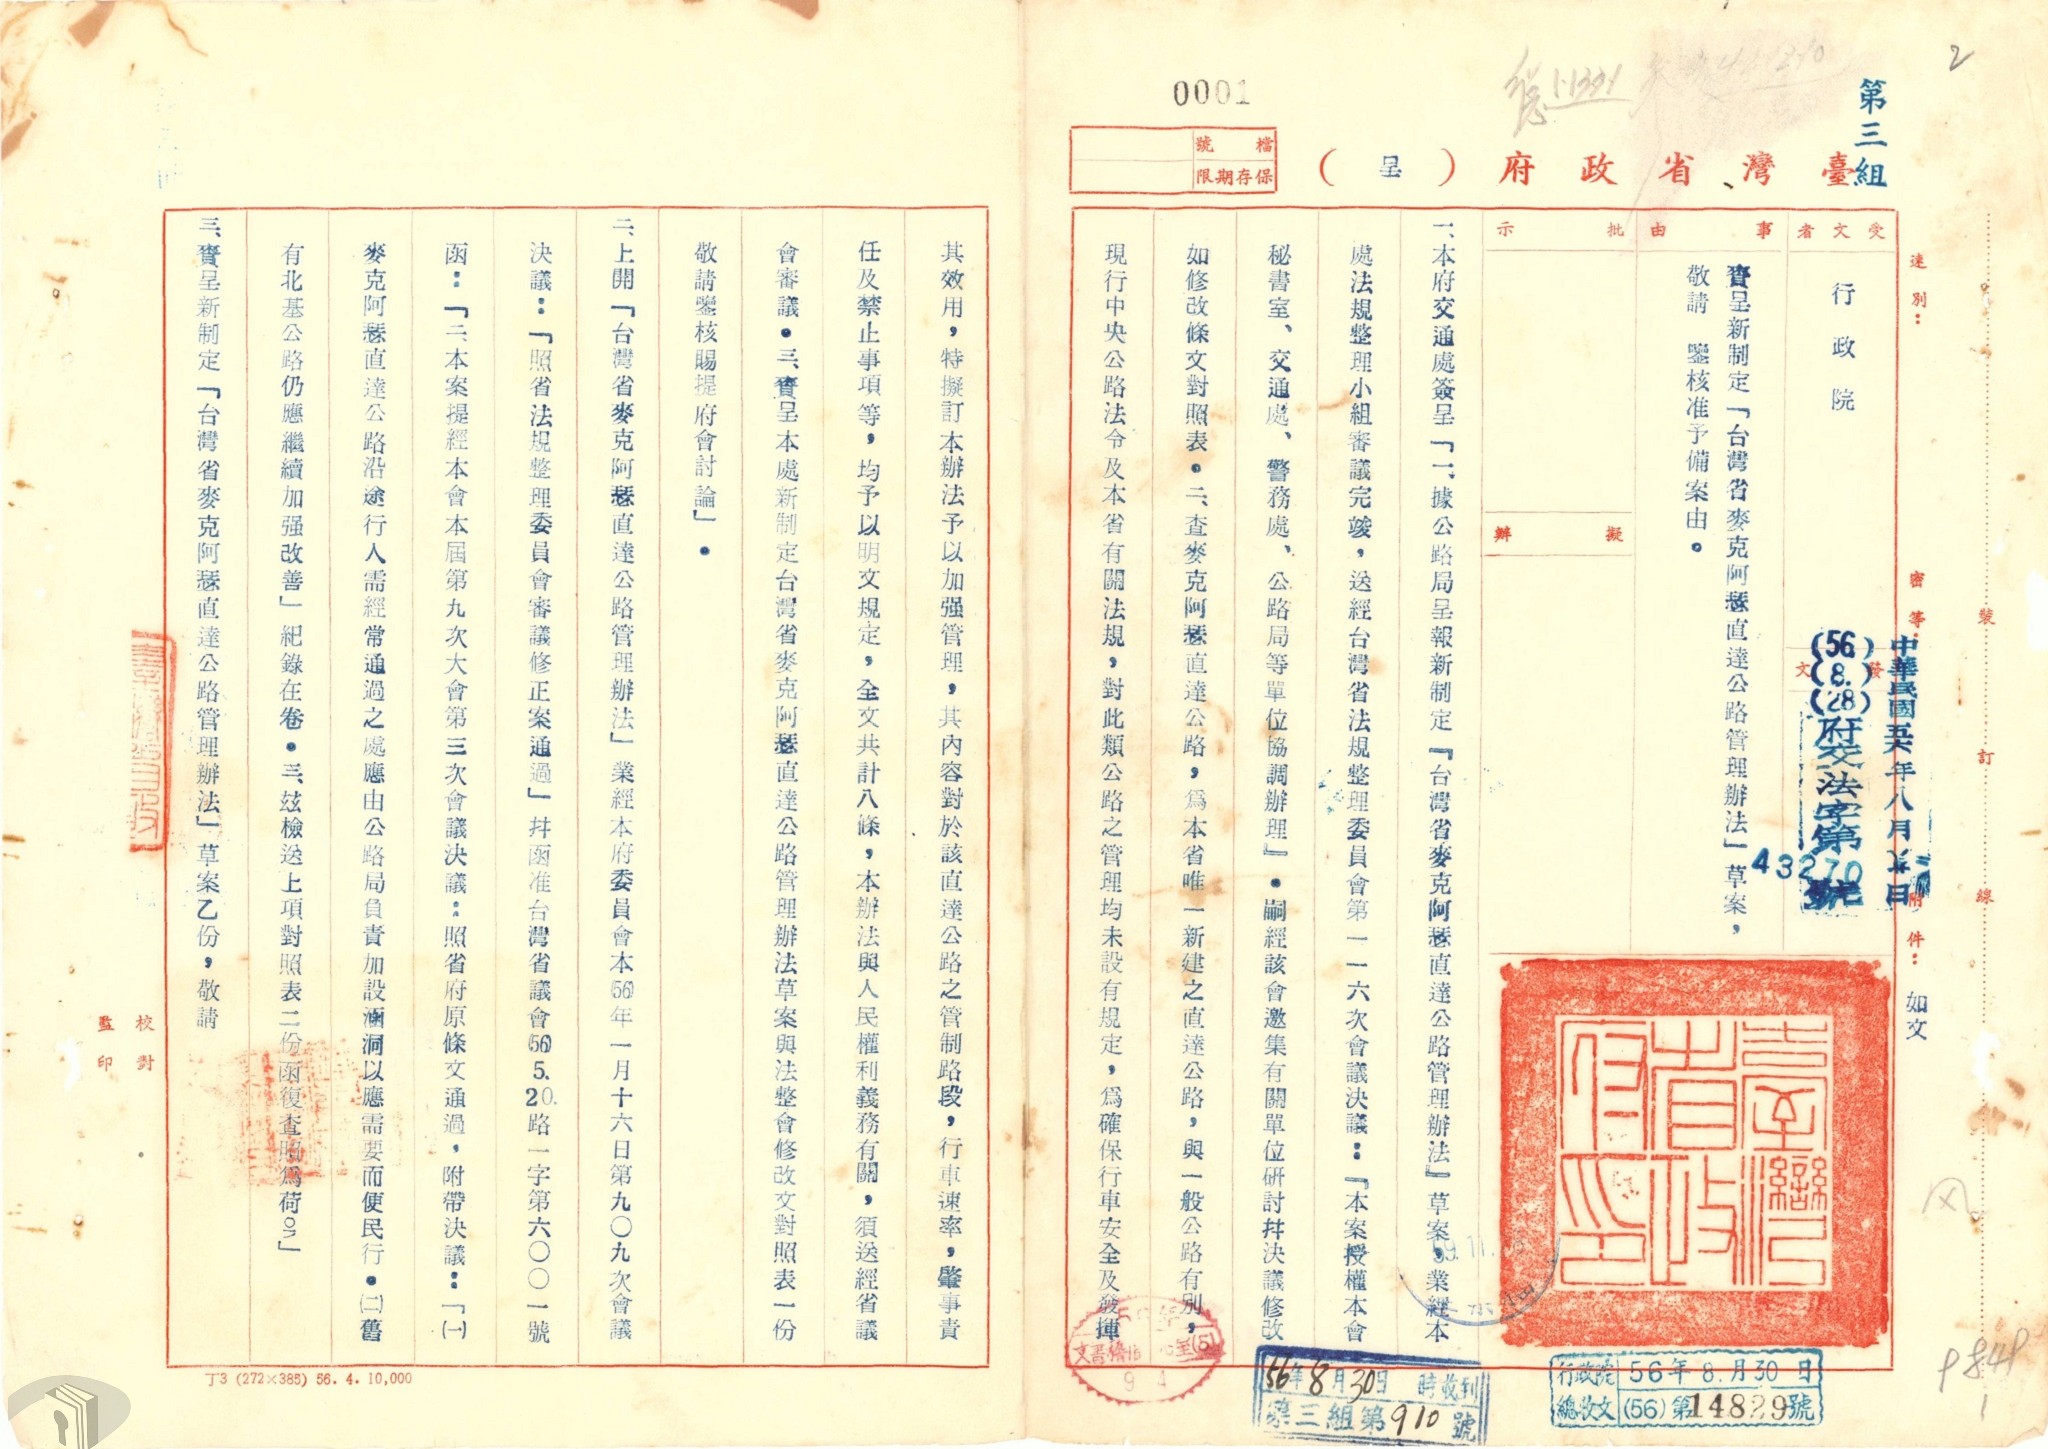 2
第三組
0001
臺灣省政府（呈）
檔號
保存期限
速別：
密等：
附件：如文
裝訂線
受文者
行政院
事由
賷呈新制定「台灣省麥克阿瑟直達公路管理辦法」草案，
敬請　鑒核准予備案由。
批示
擬辦
發文
中華民國五六年八月
(56)(8.)(28)府交法字第43270號
一、本府交通處簽呈「一、據公路局呈報新制定『台灣省麥克阿瑟直達公路管理辦法』草案，業經本
處法規整理小組審議完竣，送經台灣省法規整理委員會第一一六次會議決議：『本案授權本會
秘書室、交通處、警務處、公路局等單位協調辦理』。嗣經該會邀集有關單位研討幷決議修改
如修改條文對照表。二、查麥克阿瑟直達公路，爲本省唯一新建之直達公路，與一般公路有別，
現行中央公路法令及本省有關法規，對此類公路之管理均未設有規定，爲確保行車安全及發揮
其效用，特擬訂本辦法予以加强管理，其內容對於該直達公路之管制路段，行車速率，肇事責
任及禁止事項等，均予以明文規定，全文共計八條，本辦法與人民權利義務有關，須送經省議
會審議。三、賷呈本處新制定台灣省麥克阿瑟直達公路管理辦法草案與法整會修改文對照表一份
敬請鑒核賜提府會討論」。
二、上開「台灣省麥克阿瑟直達公路管理辦法」業經本府委員會本(56)年一月十六日第九〇九次會議
決議：「照省法規整理委員會審議修正案通過」幷函准台灣省議會(56)5.20.路一字第六〇〇一號
函：「二、本案提經本會本屆第九次大會第三次會議決議：照省府原條文通過，附帶決議：「㈠
麥克阿瑟直達公路沿途行人需經常通過之處應由公路局負責加設涵洞以應需要而便民行。㈡舊
有北基公路仍應繼續加强改善」紀錄在卷。三、玆檢送上項對照表二份函復查照爲荷。」
三、賷呈新制定「台灣省麥克阿瑟直達公路管理辦法」草案乙份，敬請
校對
監印
臺灣省政府印
56年8月30日　時收到
第三組第910號
行政院總收文
56年8.月30日
(56)第14829號
丁3 (272×385) 56. 4. 10,000